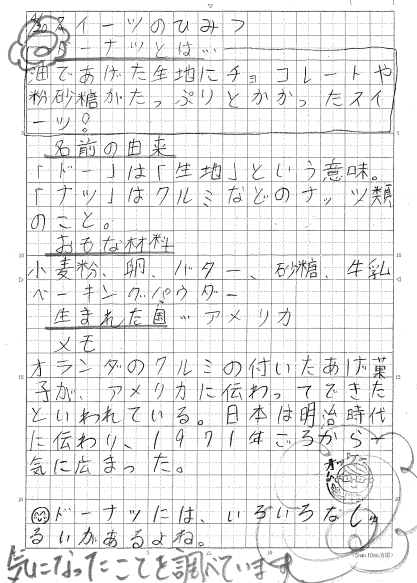 スイーツのひみつ
ドーナツとは…
油であげた生地にチョコレートや
粉砂糖がたっぷりとかかったスイ
ーツ。
名前の由来
「ドー」は「生地」という意味。
「ナツ」はクルミなどのナッツ類
のこと。
おもな材料
小麦粉、卵、バター、砂糖、牛乳
ベーキングパウダー
生まれた国…アメリカ
メモ
オランダのクルミの付いたあげ菓
子が、アメリカに伝わってできた
といわれている。日本は明治時代
に伝わり、1971年ごろから一
気に広まった。
ドーナツには、いろいろなしゅ
るいがあるよね。
気になったことを調べています